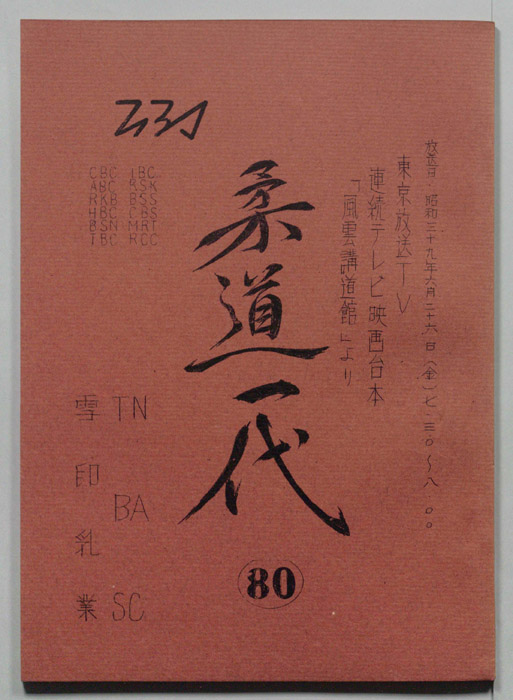 放送日・昭和三十九年六月二十六日(金)七・三〇〜八・〇〇
東京放送TV
連続テレビ映画台本
「風雲講道館」より
柔道一代
80
CBC IBC
ABC RSK
RKB BSS
HBC CBS
BSN MRT
TBC RCC
TN BA SC
雪印乳業